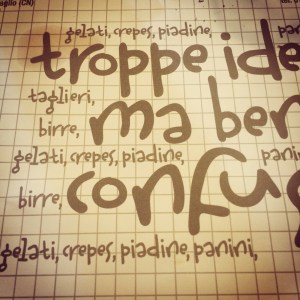 aglio (CN)
gelati, crepes, piadine,
troppe ide
taglieri,
birre, ma ben
gelati, crepes, piadine, panini
birre, confus
gelati, crepes, piadine, panini,